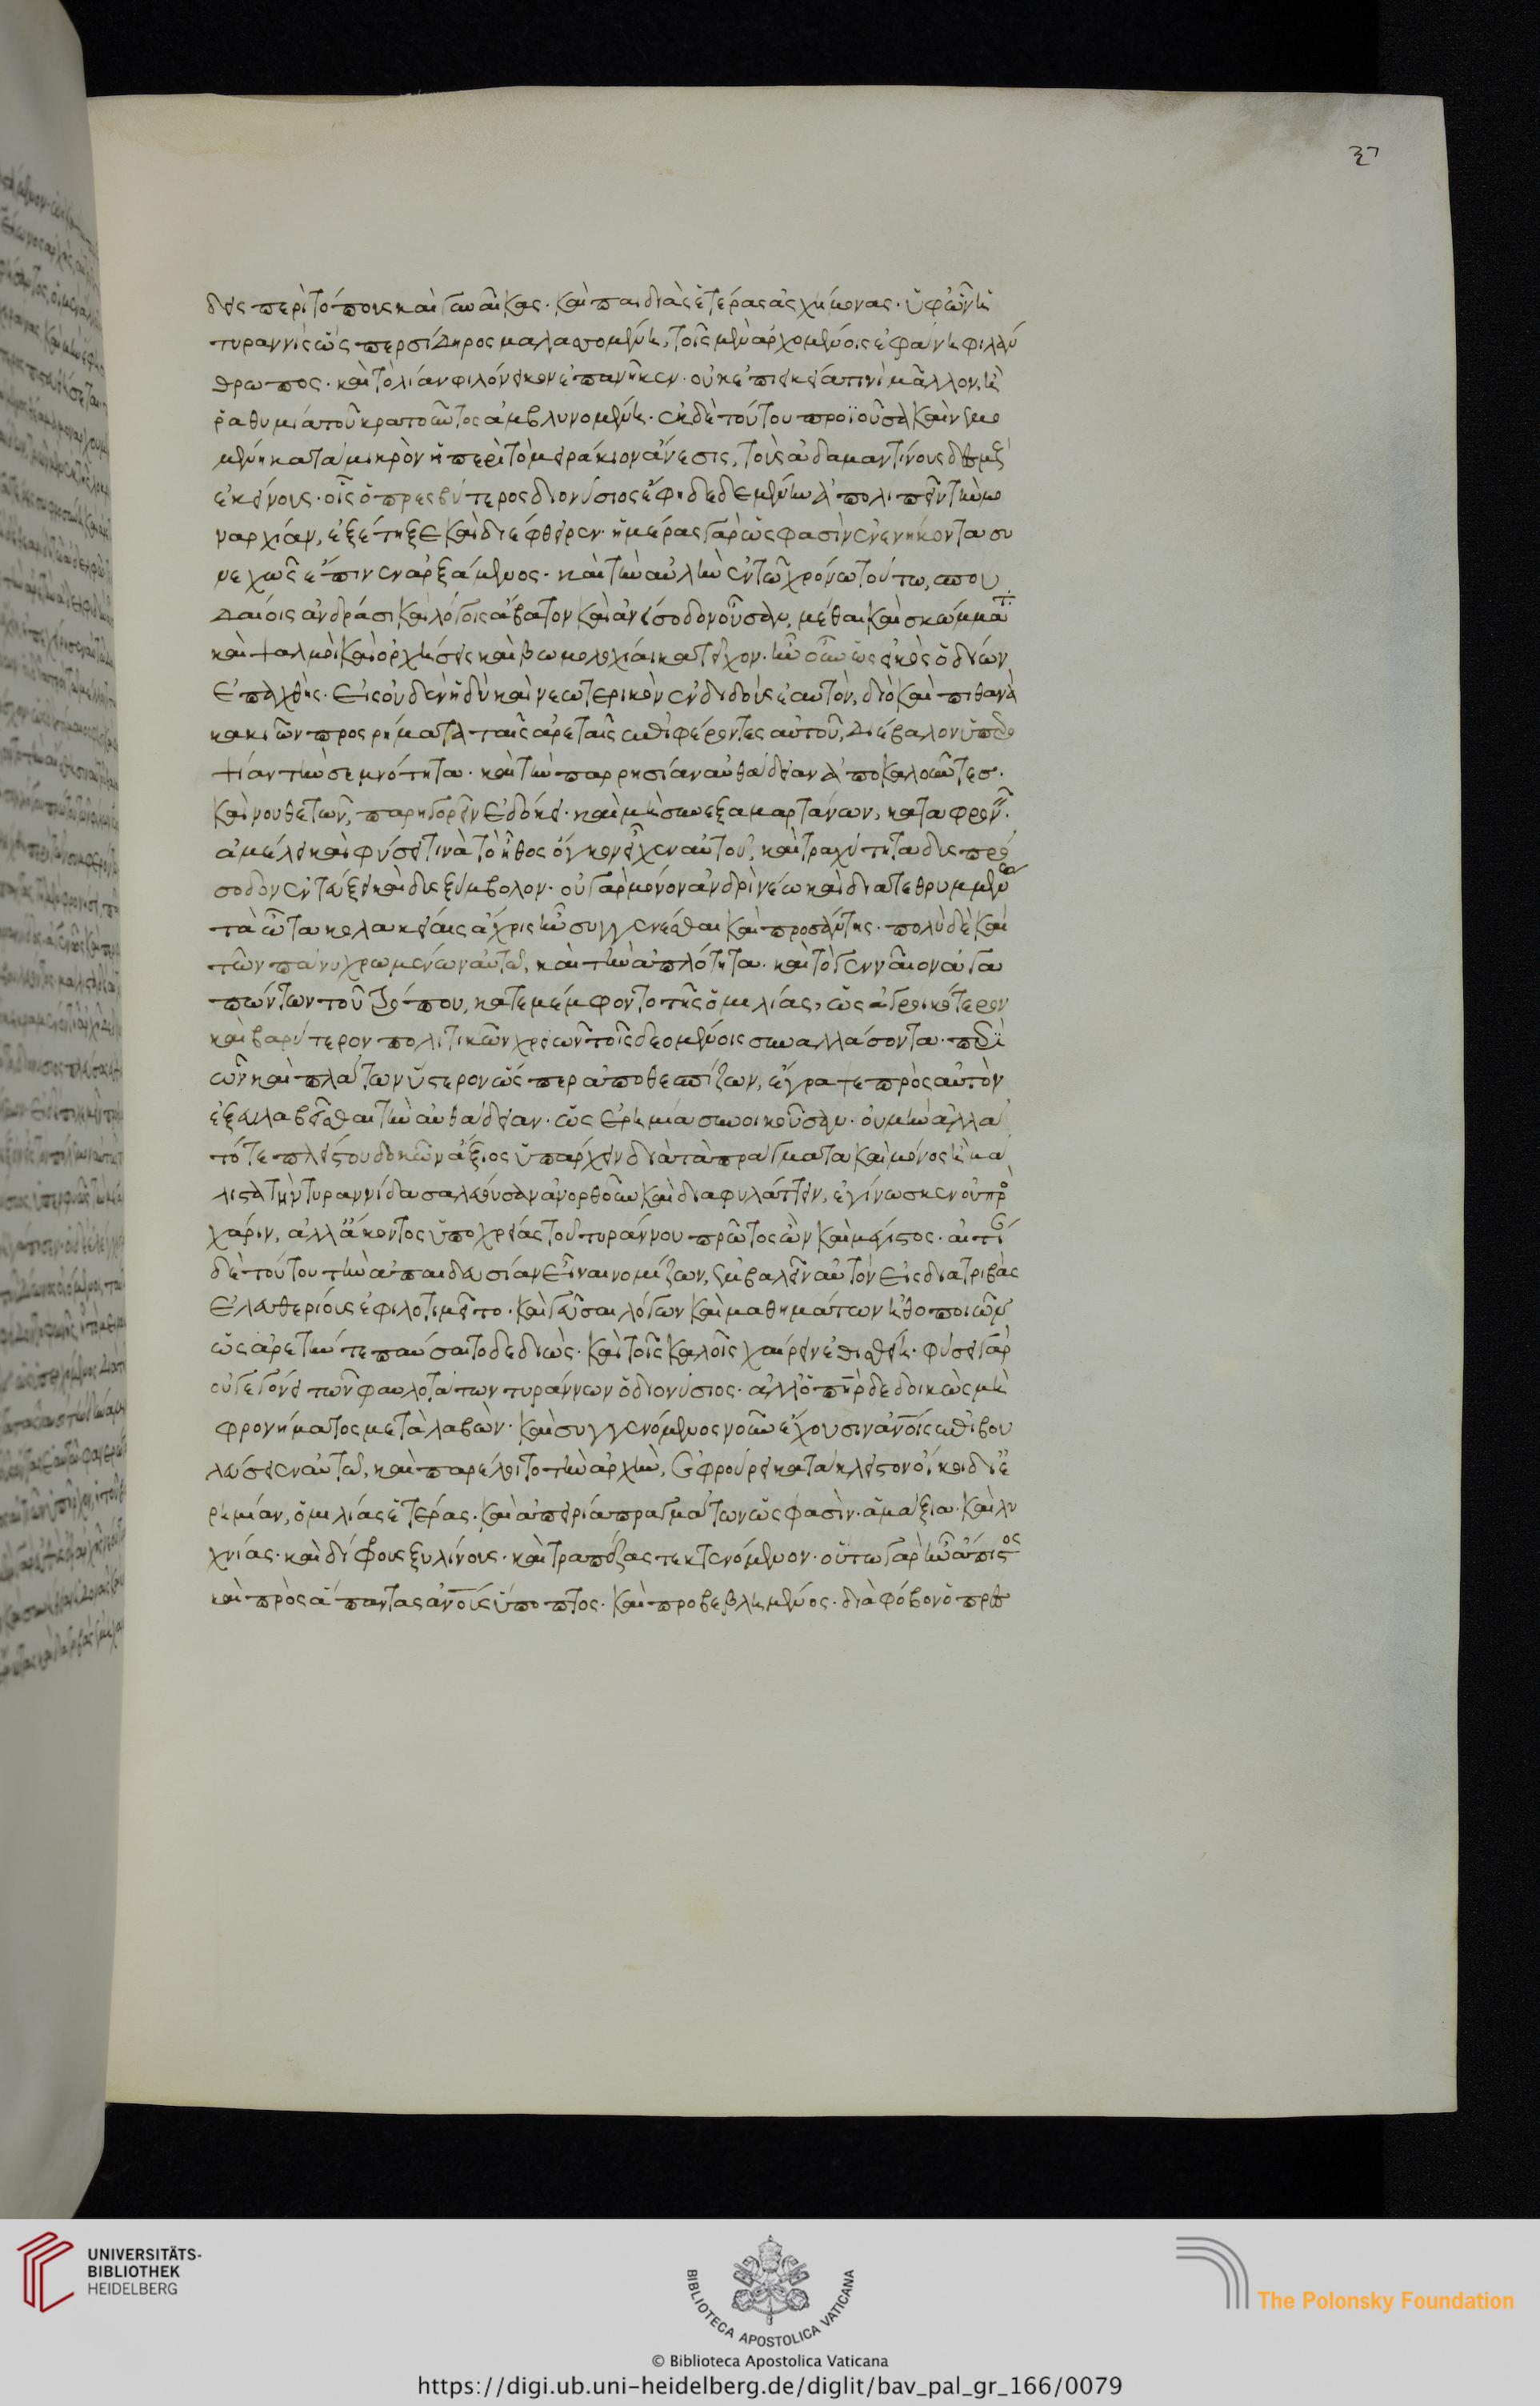 δεις περὶ τόπους καὶ γυναῖκας· καὶ παιδιὰς ἑτέρας ἀσχήμονας· ὑφ' ὧν ἡ
τυραννὶς ὥσπερ σίδηρος μαλασσομένη, τοῖς μὲν ἀρχομένοις ἐφαίνετο φιλάν
θρωπος· καὶ τὸ λίαν φιλόνεικον ἐπανῆκεν· οὐκ ἐπιεικείᾳ τινὶ μᾶλλον, ἢ
ῥαθυμία τοῦ κρατοῦντος ἀμβλυνομένη· ἐκ δὲ τούτου προϊοῦσα καὶ νεμο
μένη κατὰ μικρὸν ἡ περὶ τὸ μειράκιον ἄνεσις, τοὺς ἀδαμαντίνους δεσμοὺς
ἐκείνους· οἷς ὁ πρεσβύτερος διονύσιος ἔφη δεδεμένην ἀπολιπεῖν τὴν μο
ναρχίαν, ἐξέτηξε καὶ διέφθειρεν· ἡμέρας γὰρ ὥς φασὶν ἐνενήκοντα συ
νεχῶς ἔπινεν ἀρξάμενος· καὶ τὴν αὐλὴν ἐν τῶ χρόνω τούτω, σπου
δαίοις ἀνδράσι καὶ λόγοις ἄβατον καὶ ἀνείσοδον οὖσαν, μέθαι καὶ σκώμματα
καὶ ψαλμοὶ καὶ ὀρχήσεις καὶ βωμολοχίαι κατεῖχον· ἦν οὖν ὡς εἰκὸς ὁ δίων
ἐπαχθὴς· εἰς οὐδὲν ἡδὺ καὶ νεωτερικὸν ἐνδιδοὺς ἑαυτὸν, διὸ καὶ πιθανὰ
κακιῶν προσρήματα ταῖς ἀρεταῖς ἐπιφέροντες αὐτοῦ, διέβαλον ὑπερο
ψίαν τὴν σεμνότητα· καὶ τὴν παρρησίαν αὐθάδειαν ἀποκαλοῦντες·
καὶ νουθετῶν, κατηγορεῖν ἐδόκει· καὶ μὴ συνεξαμαρτάνων, καταφρονεῖν·
ἀμέλει καὶ φύσει τινὰ τὸ ἦθος ὄγκον εἶχεν αὐτοῦ, καὶ τραχύτητα δυσπρό
σοδον ἐντεύξει καὶ δυσξύμβολον· οὐ γὰρ μόνον ἀνδρὶ νέω καὶ διατεθρυμμένω
τὰ ὦτα κολακείαις ἄχρις ἦν συγγενέσθαι καὶ προσάντης· πολὺ δὲ καὶ
τῶν πάνυ χρωμένων αὐτῶ, καὶ τὴν ἁπλότητα· καὶ τὸ γενναῖον ἀγα
πώντων τοῦ τρόπου, κατεμέμφοντο τῆς ὁμιλίας, ὡς ἀγροικότερον
καὶ βαρύτερον πολιτικῶν χρειῶν τοῖς δεομένοις συναλλάσοντα· περὶ
ὧν καὶ πλάτων ὕστερον ὥσπερ ἀποθεσπίζων, ἔγραψε πρὸς αὐτὸν
ἐξευλαβεῖσθαι τὴν αὐθάδειαν· ὡς ἐρημία συνοικοῦσαν· οὐ μὴν ἀλλὰ
τότε πλείστου δοκῶν ἄξιος ὑπάρχειν διὰ τὰ πράγματα καὶ μόνος ἢ μά
λιστα τὴν τυραννίδα σαλεύουσαν ἀνορθοῦν καὶ διαφυλάττειν, ἐγίνωσκεν οὐ πρὸς
χάριν, ἀλλ' ἄκοντος ὑπὸ χρείας τοῦ τυράννου πρῶτος ὢν καὶ μέγιστος· αἰτίαν
δὲ τούτου τὴν ἀπαιδευσίαν εἶναι νομίζων, ἐμβαλεῖν αὐτὸν εἰς διατριβὰς
ἐλευθερίους ἐφιλοτιμεῖτο· καὶ γεῦσαι λόγων καὶ μαθημάτων ἠθοποιῶν
ὡς ἀρετήν τε παύσαιτο δεδιὼς· καὶ τοῖς καλοῖς χαίρειν ἐθισθείη· φύσει γὰρ
οὐ γεγόνει τῶν φαυλοτάτων τυράννων ὁ διονύσιος· ἀλλ' ὁ πατὴρ δεδοικὼς μὴ
φρονήματος μεταλαβὼν· καὶ συγγενόμενος νοῦν ἔχουσιν ἀνθρώποις ἐπιβου
λεύσειεν αὐτῶ, καὶ παρέλοιτο τὴν ἀρχὴν, ἐφρούρει κατάκλειστον οἴκοι δι' ἐ
ρημίαν, ὁμιλίας ἑτέρας· καὶ ἀπειρία πραγμάτων ὥς φασὶν· ἁμάξια· καὶ λυ
χνίας· καὶ δίφρους ξυλίνους· καὶ τραπέζας τεκτενόμενον· οὕτω γὰρ ἦν ἄπιστος
καὶ πρὸς ἅπαντας ἀνθρώπους ὕποπτος· καὶ προβεβλημένος· διὰ φόβον ὁ πρεσ
37
UNIVERSITÄTS-
BIBLIOTHEK
HEIDELBERG
BIBLIOTECA APOSTOLICA VATICANA
The Polonsky Foundation
© Biblioteca Apostolica Vaticana
https://digi.ub.uni-heidelberg.de/diglit/bav_pal_gr_166/0079